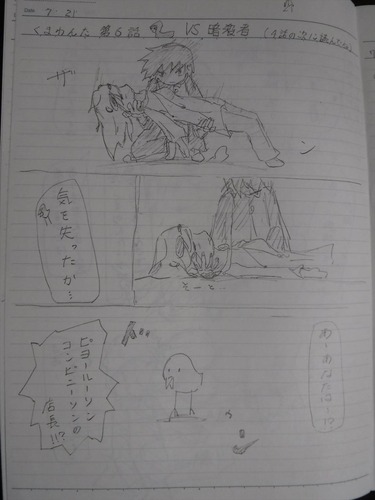 7-21
くまわんた 第6話 VS 暗殺者 (4話の次に読んでね)
ザ
ン
気を失ったか…
そーっ
あーあなたは…!?
ピヨールーソン
コンビニーソンの
店長!!?